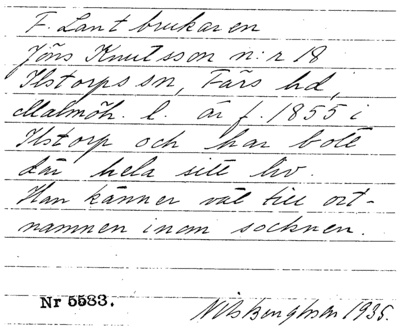 F. Lantbrukaren
Jöns Knutsson n:r 18
Ilstorps sn, Färs hd,
Malmöh. l. är f. 1855 i
Ilstorp och har bott
där hela sitt liv.
Han känner väl till ort-
namnen inom socknen.
Nr 5583.
1935.